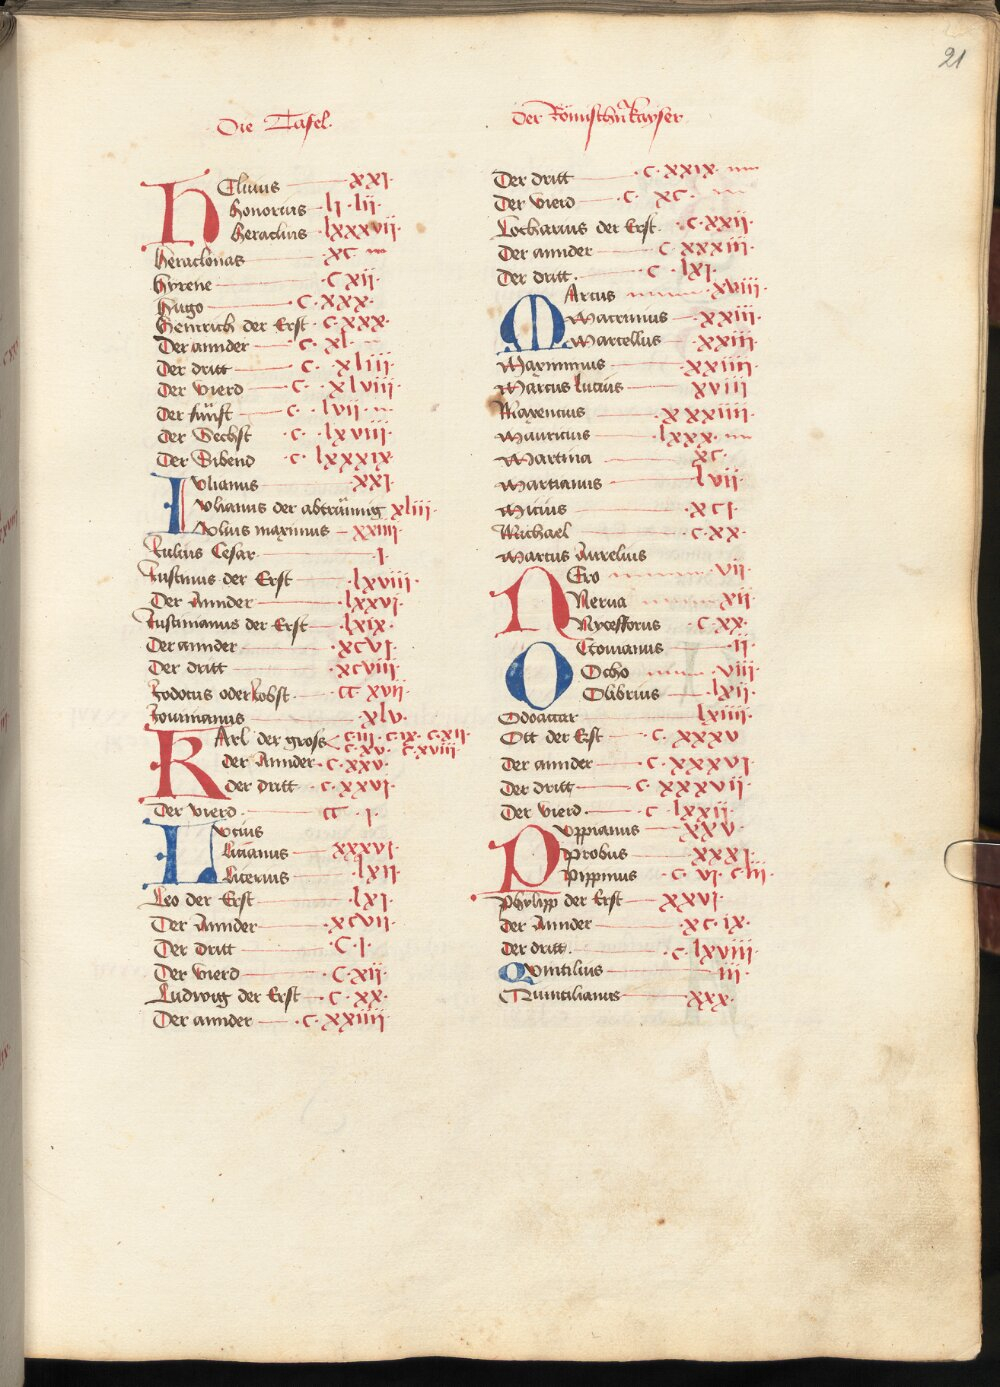 21
Die Tafel
der Römischn kayser
HElīuus XXI
honorius li lii
heraclius lxxxvii
heraclonas XC
hyrene C Xii
hugo C XXX
heinrich der Erst C XXX
Der annder C Xl
Der dritt C Xliii
Der vierd C Xlviii
Der fünft C lvii
der Sechst C lxviii
Der Sibend C lxxxix
IVlianus XXI
vlianus der abtrünnig xliii
Iulius maximus xxiiii
Iulius Cesar I
Iustinus der Erst lxviii
Der Annder lxxvi
Iustinianus der Erst lxix
Der annder xcvi
Der dritt xcviii
Jodocus oder Jobst CC xvii
Jouinianus xlv
KArl der gross c iii c ix c xii
c xv c xviii
der Annder c xxv
der dritt c xxvi
Der vierd CC I
LVcius
Licianus xxxvi
Literius lxii
Leo der Erst lxi
Der Annder xcvii
Der dritt C I
Der vierd C xii
Ludwig der Erst C XX
Der annder C XXiiii
Der dritt C XXIX
Der vierd C XC
Lotharius der Erst C xxii
Der annder C xxxiii
Der dritt C lxi
MArcus xviii
Macrinus xxiii
Marcellus xxiii
Maximinus xxiiii
Marcus Lucius xviii
Maxencius xxxiiii
Mauricius lxxx
Martina xc
Martianus lvii
Micius xci
Michael c xx
Marcus Aurelius
NEro vii
Nerua xii
Nycefforus C XX
OCtouianus ii
Otho viii
Olibrius lxii
Odoaccar lxiiii
Ott der Erst C XXXV
Der annder C XXXVI
Der dritt C XXXVII
Der vierd C lxxii
PVppianus XXV
Probus XXXI
Pippinus C VI C iii
Phylipp der Erst XXVI
Der Annder XC IX
Der dritt C lxviii
QVintilius iii
Quintilianus XXX